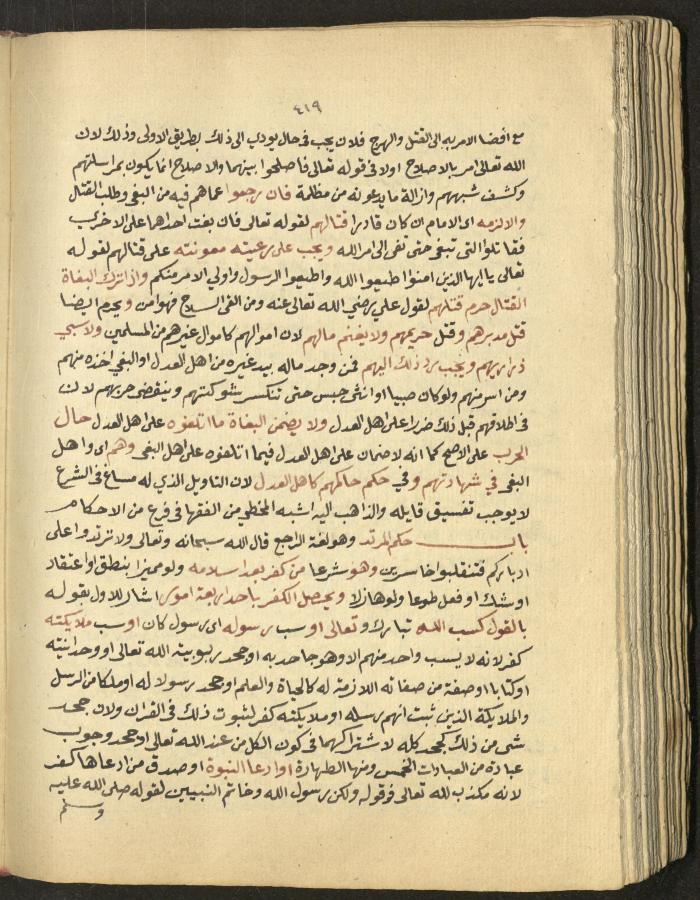 ٤١٩
مع افضا الامر به الى القتل والهرج فلان يجب في حال يودي الى ذلك بطريق الاولى وذلك لان
الله تعالى امر بالاصلاح اولا في قوله تعالى فاصلحوا بينهما والاصلاح انما يكون بمراسلتهم
وكشف شبههم وازالة ما يدعونه من مظلمة فان رجعوا عما هم فيه من البغي وطلب القتال
والا لزمه اى الامام ان كان قادرا قتالهم لقوله تعالى فان بغت احداهما على الاخرى
فقاتلوا التي تبغي حتى تفى الى امر الله ويجب على رعيته معونته على قتالهم لقوله
تعالى يا ايها الذين امنوا اطيعوا الله واطيعوا الرسول واولي الامر منكم واذا ترك البغاة
القتال حرم قتلهم لقول علي رضي الله تعالى عنه ومن القى السلاح فهو امن ويحرم ايضا
قتل مدبرهم وقتل جريحهم ولا يغنم مالهم لان اموالهم كاموال غيرهم من المسلمين ولا سبي
ذراريهم ويجب رد ذلك اليهم فمن وجد ماله بيد غيره من اهل العدل او البغي اخذه منهم
ومن اسر منهم ولو كان صبيا او انثى حبس حتى تنكسر شوكتهم وينقضى حربهم لان
في اطلاقهم قبل ذلك ضررا على اهل العدل ولا يضمن البغاة ما اتلفوه على اهل العدل حال
الحرب على الاصح كما انه لا ضمان على اهل العدل فيما اتلفوه على اهل البغي وهم اى واهل
البغي في شهادتهم وفي حكم حاكمهم كاهل العدل لان التاويل الذي له مساغ في الشرع
لا يوجب تفسيق قايله والذاهب اليه اشبه المخطي من الفقها في فرع من الاحكام
باب حكم المرتد وهو لغة الراجع قال الله سبحانه وتعالى ولا ترتدوا على
ادباركم فتنقلبوا خاسرين وهو شرعا من كفر بعد اسلامه ولو مميزا بنطق او اعتقاد
او شك او فعل طوعا ولو هازلا ويحصل الكفر باحد اربعة امور اشار للاول بقوله
بالقول كسب الله تبارك وتعالى او سب رسوله اى رسول كان او سب ملايكته
كفر لانه لا يسب واحد منهم الا وهو جاحد به او جحد ربوبية الله تعالى او وحدانيته
او كتابا او صفة من صفاته اللازمة له كالحياة والعلم او جحد رسولا له او ملكا من الرسل
والملايكة الذين ثبت انهم رسله او ملايكته كفر لثبوت ذلك في القران ولان جحد
شى من ذلك كجحد كله لاشتراكهما في كون الكل من عند الله تعالى او جحد وجوب
عبادة من العبادات الخمس ومنها الطهارة او ادعا النبوة او صدق من ادعاها كفر
لانه مكذب لله تعالى في قوله ولكن رسول الله وخاتم النبيين لقوله صلى الله عليه
وسلم